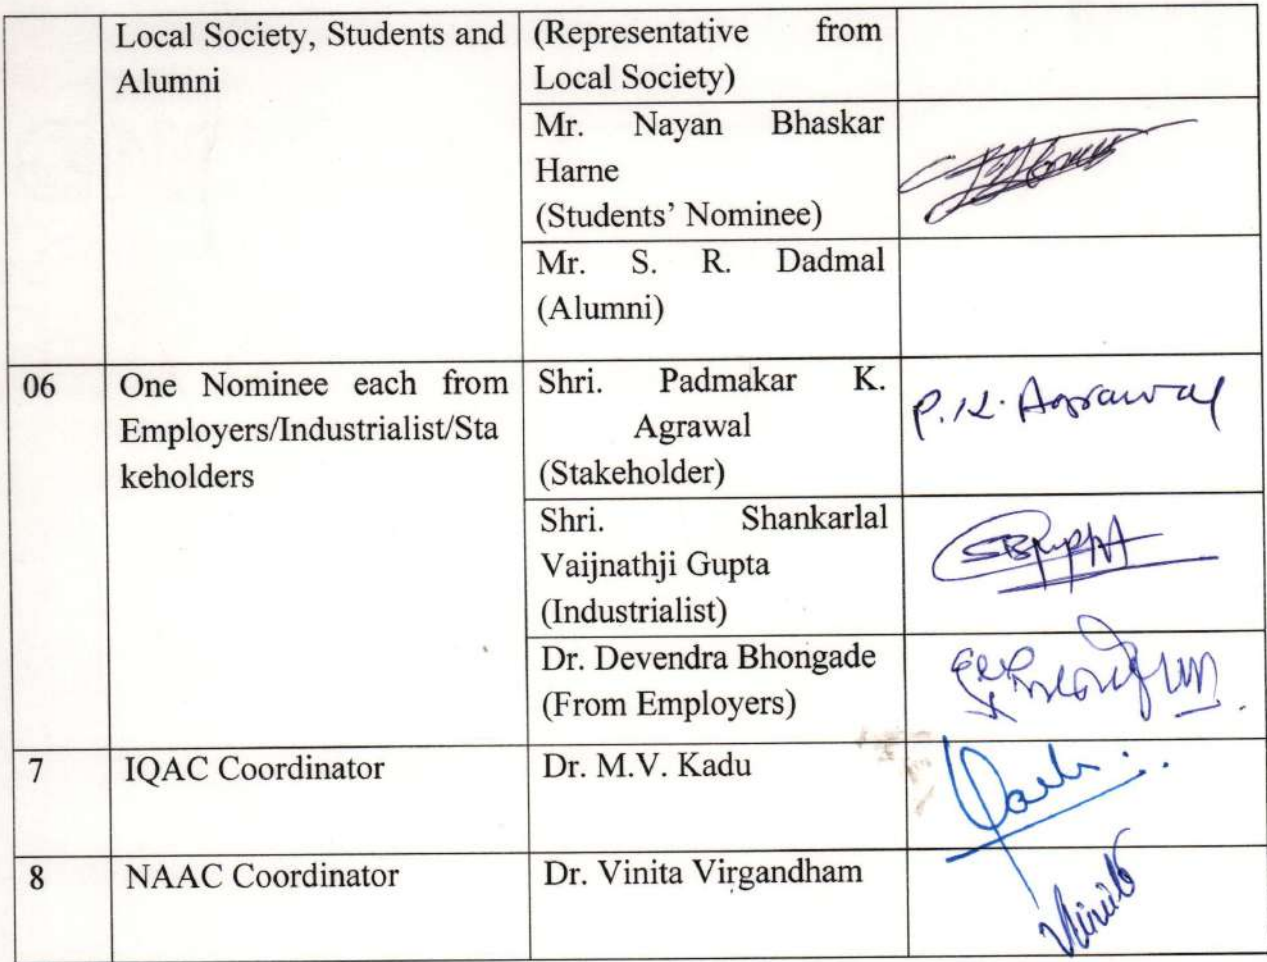 Local Society, Students and
Alumni
(Representative from
Local Society)
Mr. Nayan Bhaskar
Harne
(Students' Nominee)
Mr. S. R. Dadmal
(Alumni)
06
One Nominee each from
Employers/Industrialist/Sta
keholders
Shri. Padmakar K.
Agrawal
(Stakeholder)
P. K. Agrawal
Shri. Shankarlal
Vaijnathji Gupta
(Industrialist)
Dr. Devendra Bhongade
(From Employers)
7
IQAC Coordinator
Dr. M.V. Kadu
8
NAAC Coordinator
Dr. Vinita Virgandham